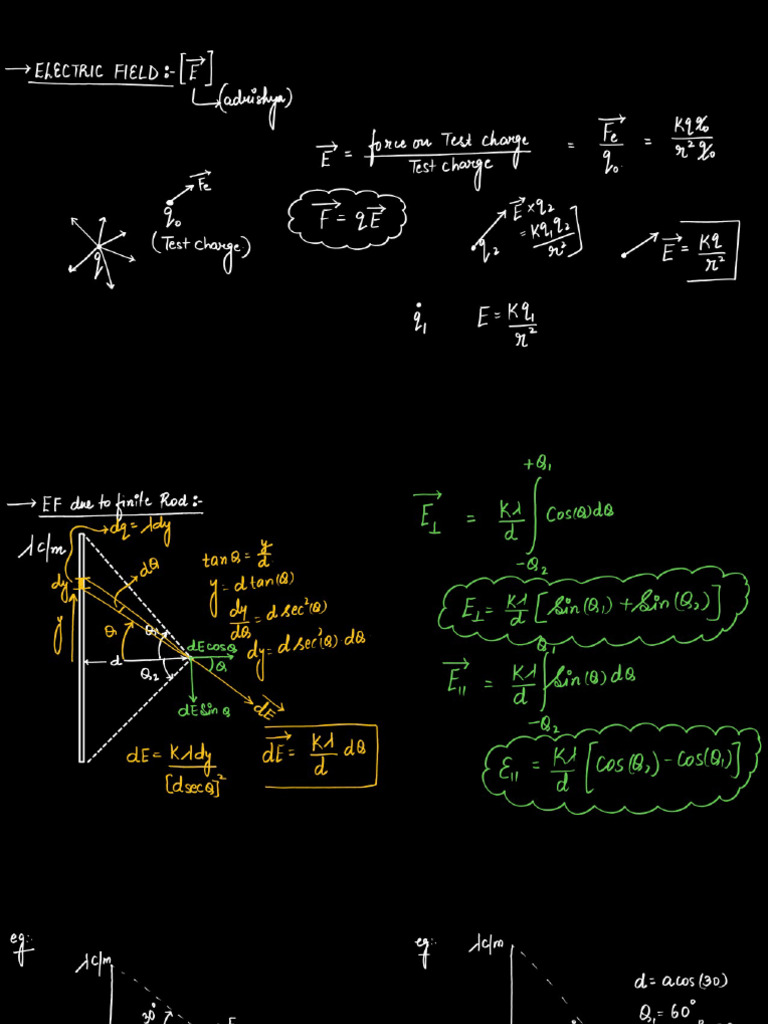 → ELECTRIC FIELD :- [E⃗]
(adrishya)
E⃗ = force on Test charge / Test charge = F⃗e / q₀ = Kqq₀ / r²q₀
F⃗e
q₀
(Test charge)
q
F⃗ = qE⃗
E⃗ × q₂
= Kq₁q₂ / r²
q₂
E⃗ = Kq / r²
q₁
E = Kq₁ / r²
→ EF due to finite Rod :-
dq = λdy
λ c/m
dy
y
dθ
θ
θ₁
θ₂
d
tanθ = y/d
y = d tan(θ)
dy/dθ = d sec²(θ)
dy = d sec²(θ)·dθ
dE cosθ
θ
dE sinθ
dE⃗
dE = Kλdy / [d secθ]²
dE⃗ = Kλ/d dθ
E⃗⊥ = Kλ/d ∫ Cos(θ)dθ
+θ₁
-θ₂
E⊥ = Kλ/d [Sin(θ₁) + Sin(θ₂)]
E⃗|| = Kλ/d ∫ Sin(θ)dθ
θ₁
-θ₂
E|| = Kλ/d [Cos(θ₂) - Cos(θ₁)]
eg:-
λ c/m
30°
eg:-
λ c/m
d = a cos(30)
θ₁ = 60°